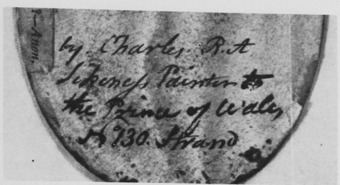 by Charles R.A
Likeness Painter to
the Prince of Wales
No 130. Strand